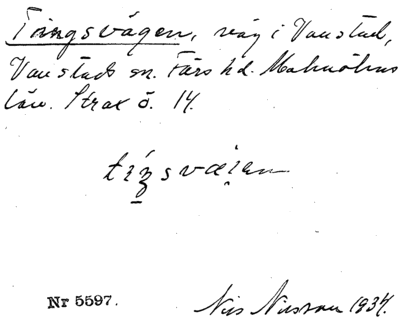 Tingsvägen, väg i Vanstad,
Vanstads sn. Färs hd. Malmöhus
län. Strax ö. 14.
tiŋsvæi̯en
Nr 5597.
Nils Nilsson 1934.